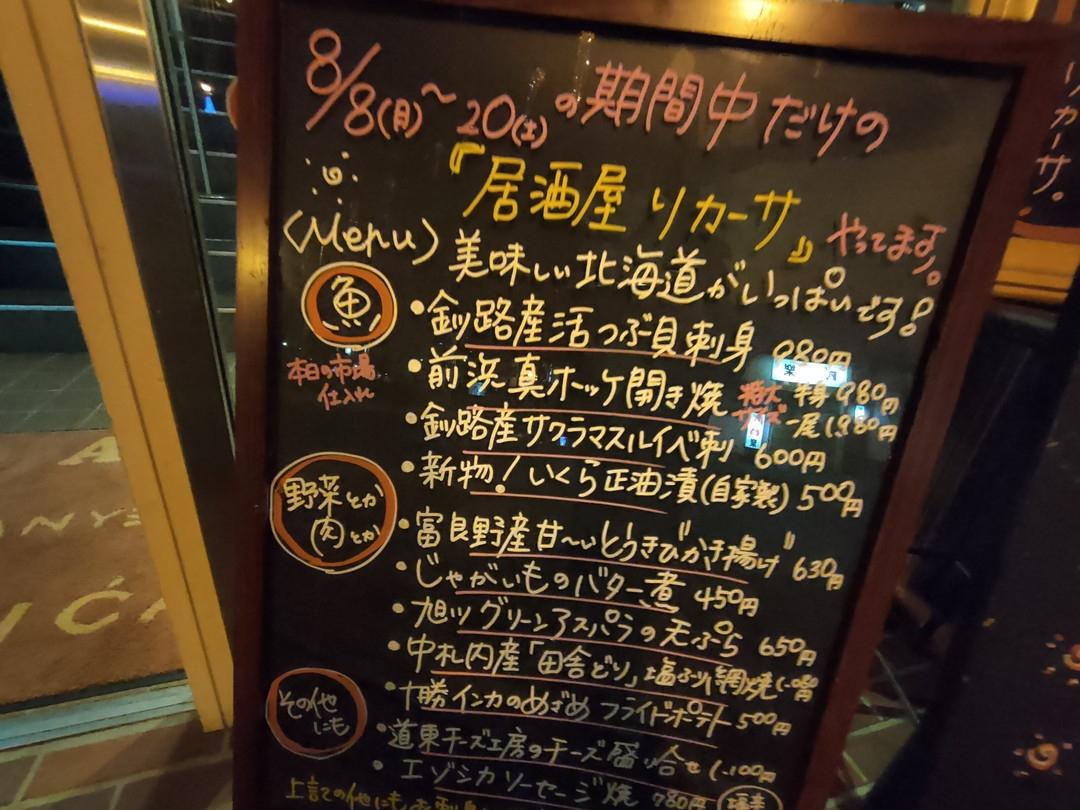 8/8(月)～20(土)の期間中だけの
『居酒屋リカーサ』やってます。
〈Menu〉美味しい北海道がいっぱいです!
魚
本日の市場
仕入れ
・釧路産活つぶ貝刺身 980円
・前浜真ホッケ開き焼 特大サイズ 半身980円
一尾1,980円
・釧路産サクラマスルイベ刺 600円
・新物!いくら正油漬(自家製) 500円
野菜とか
肉とか
・富良野産甘〜いとうきびかき揚げ 630円
・じゃがいものバター煮 450円
・旭ツグリーンアスパラの天ぷら 650円
・中札内産「田舎どり」塩ぶり網焼
・十勝インカのめざめ フライドポテト 500円
その他
にも
・道東チーズ工房のチーズ盛り合せ 1,100円
・エゾシカソーセージ焼 780円
上記の他にも
リカーサ。